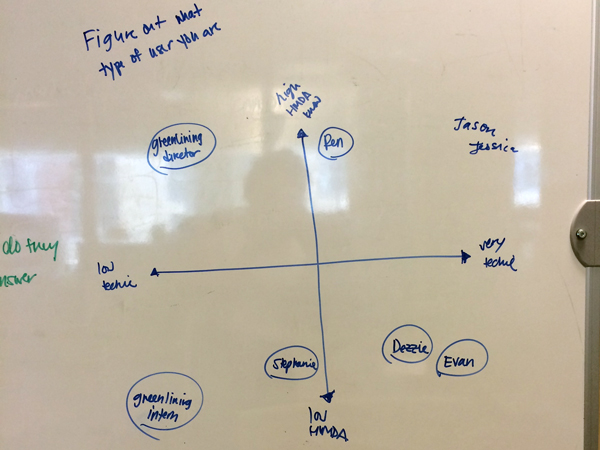 Figure out what
type of user you are
high
HMDA
know
greenlining
director
Ren
Jason
Jessica
do they
answer
low
techie
very
techie
Stephanie
Dezzie
Evan
greenlining
intern
low
HMDA